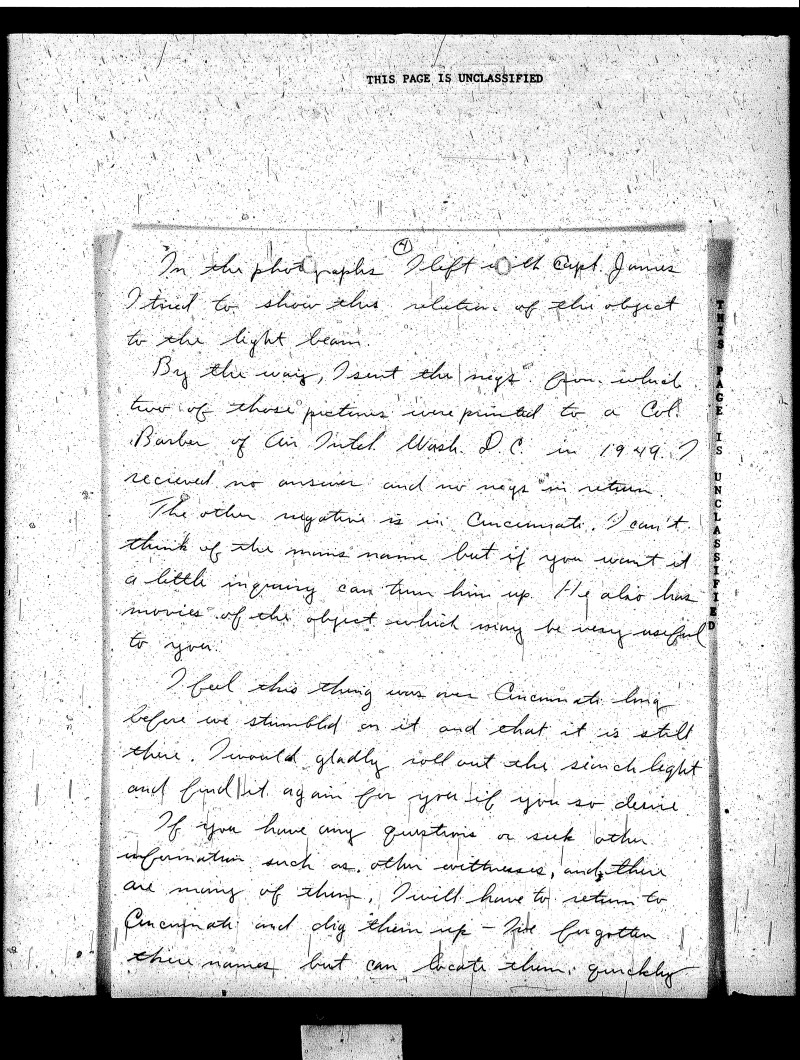 THIS PAGE IS UNCLASSIFIED
4
In the photographs I left with Capt. James
I tried to show this relation of the object
to the light beam.
By the way, I sent the negs from which
two of those pictures were printed to a Col.
Barber of Air Intel. Wash. D.C. in 1949. I
recieved no answer and no negs in return.
The other negative is in Cincinnati. I can't
think of the mans name but if you want it
a little inquiry can turn him up. He also has
movies of the object which may be very useful
to you.
I feel this thing was over Cincinnati long
before we stumbled on it and that it is still
there. I would gladly roll out the searchlight
and find it again for you if you so desire
If you have any questions or seek other
information such as other wittnesses, and there
are many of them, I will have to return to
Cincinnati and dig them up - I've forgotten
there names but can locate them quickly
THIS PAGE IS UNCLASSIFIED